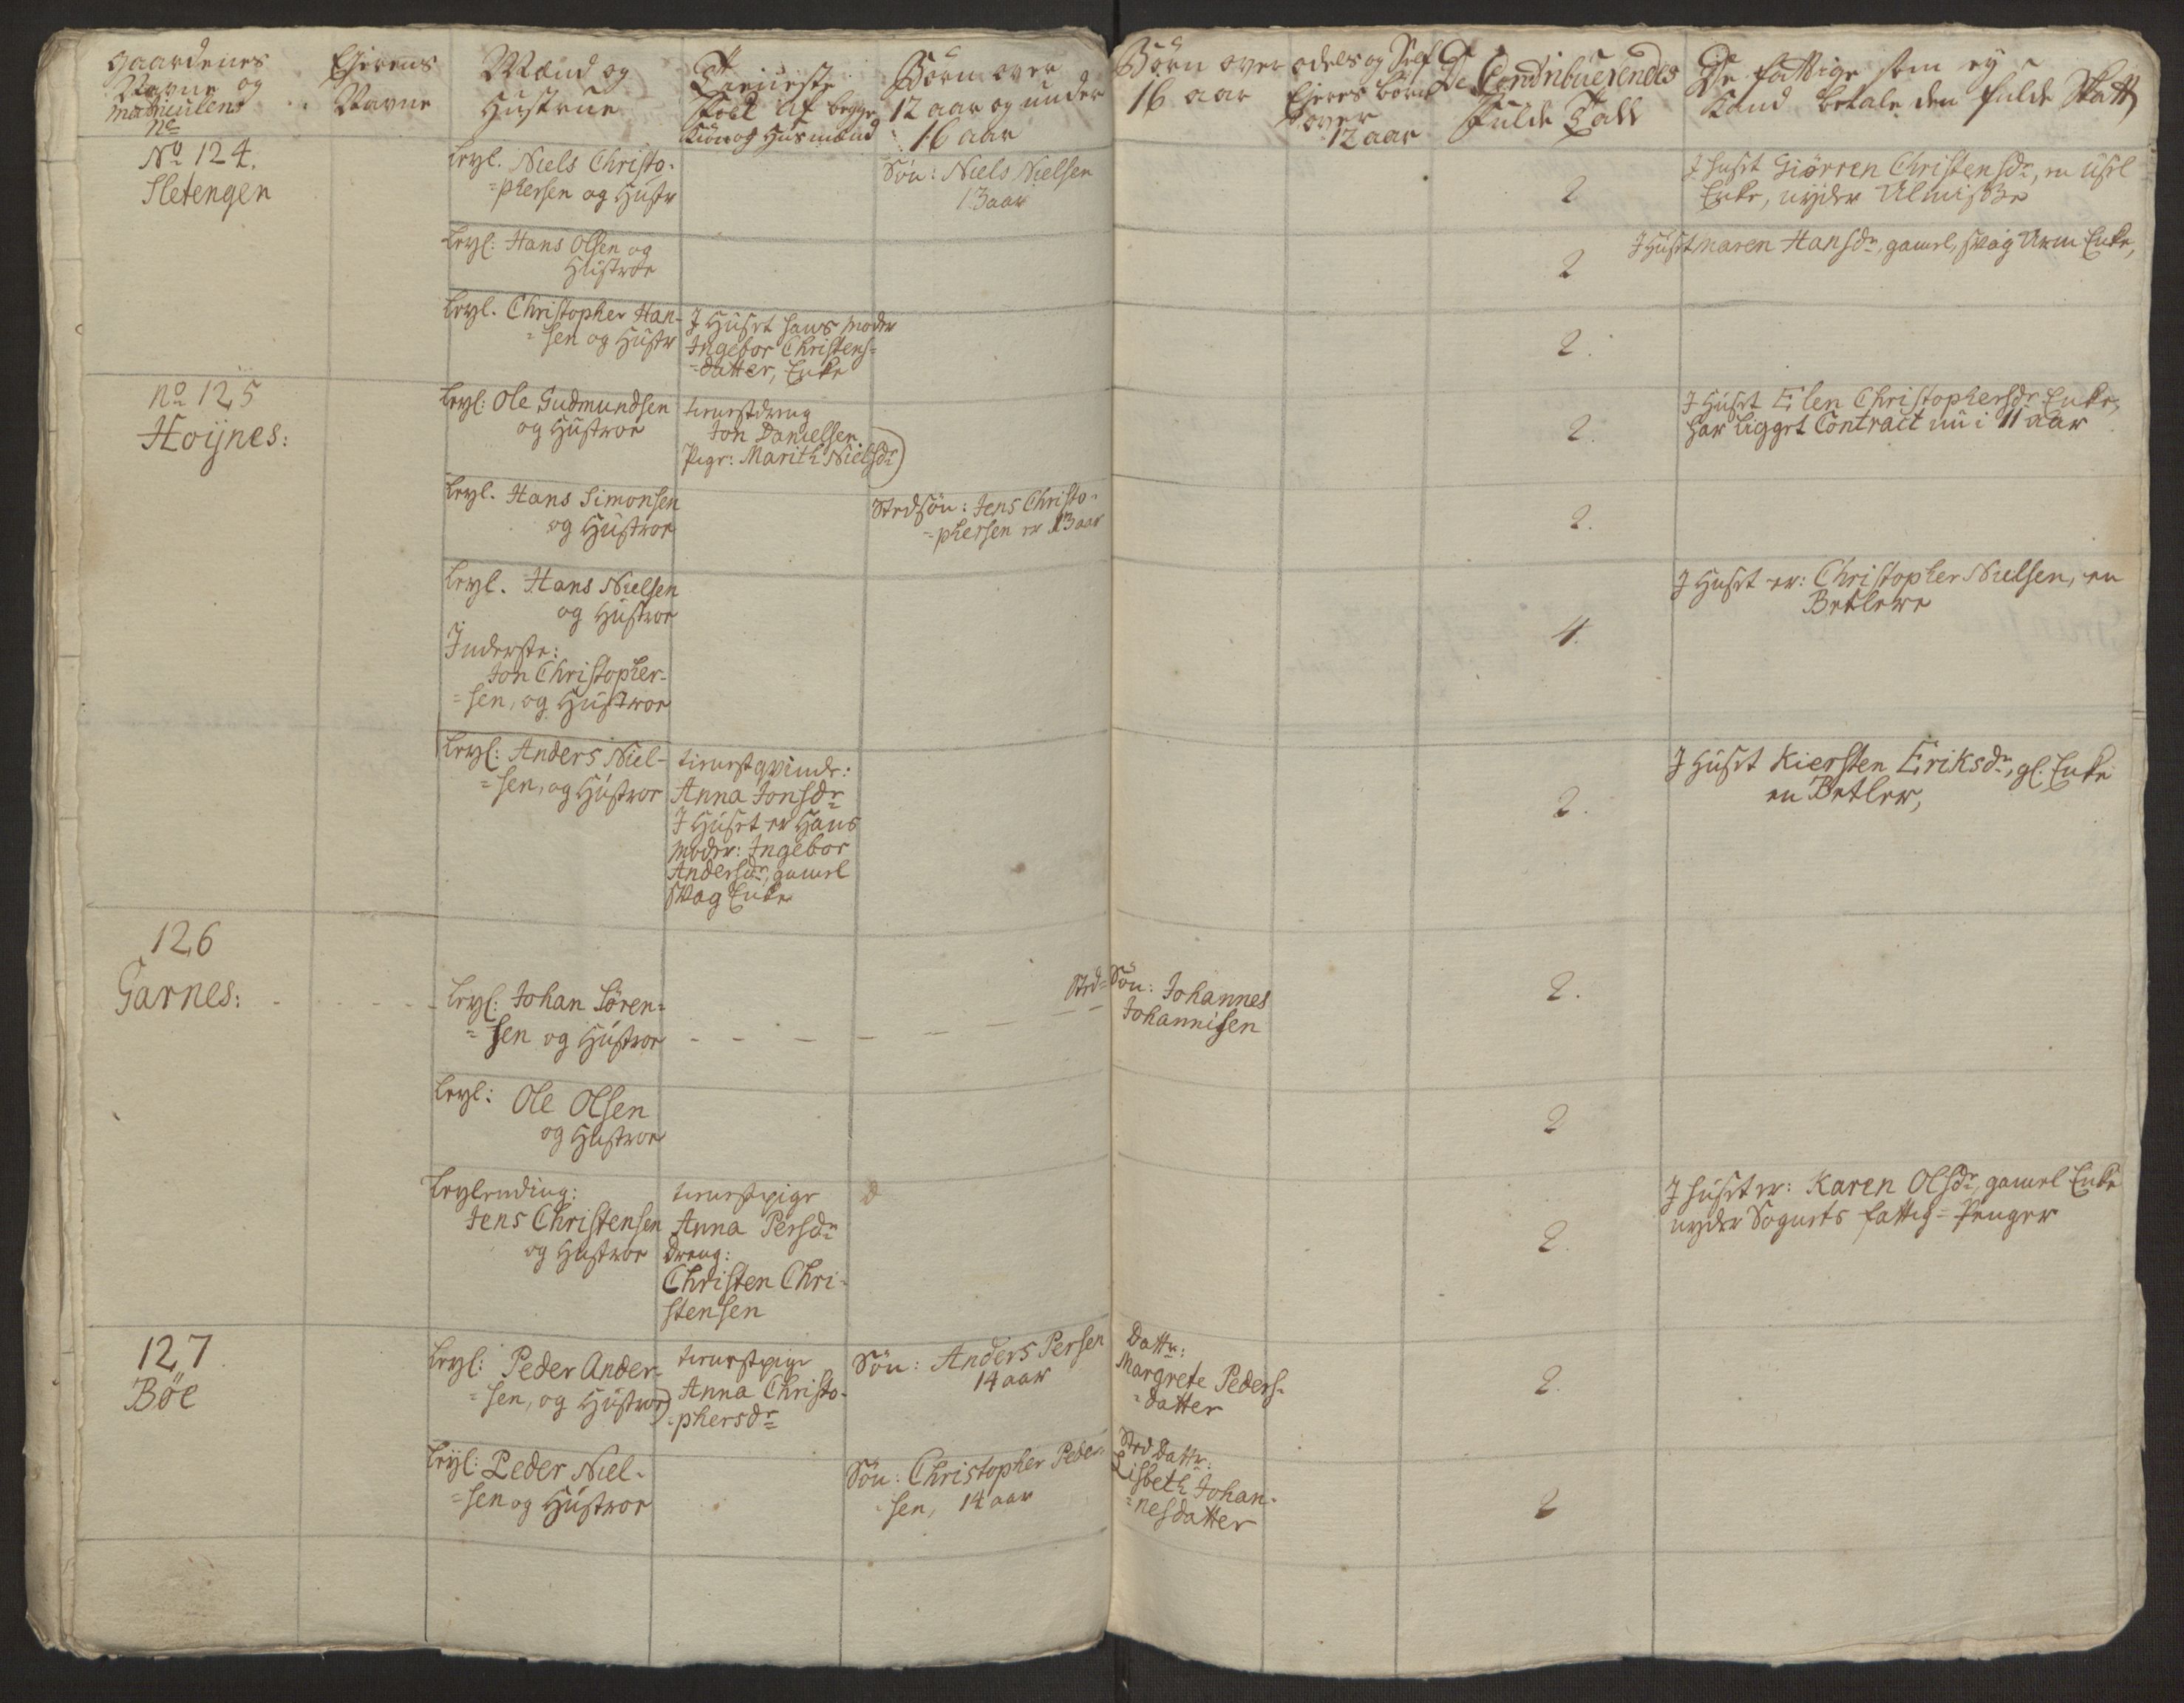 Gaardenes
Navne og
Matriculens
No
Ejerens
Navne
Mænd og
Hustrue
Tieneste
Folk af begge
Kiøn og Husmænd
Børn over
12 aar og under
16 aar
Børn over
16 aar
odels og Self
Ejeres børn
over
12 aar
De Contribuerendes
Fulde Tall
De fattige som ey
Kand betale den fulde Skatt
No 124.
Sletengen
Leyl. Niels Christo-
=phersen og Hustr
Søn: Niels Nielsen
13 aar
2
J huset Giørren Christensdr, en usel
Enke, nyder Almisse
Leyl: Hans Olsen og
Hustroe
2
J Huset Maren Hansdr, gamel, svag Arm Enke,
Leyl. Christopher Han-
=sen og Hustr
J Huset hans Moder
Ingebor Christens=
=datter, Enke
2.
No 125
Hoijnes:
Leyl: Ole Gudmundsen
og Hustroe
tienestdreng
Jon Danielsen
Pige: Marith Nielsdr
2.
J Huset Elen Christophersdr Enke,
har ligget Contract nu i 11 aar
Leyl. Hans Simonsen
og Hustroe
Stedsøn: Jens Christo-
=phersen er 13 aar
2.
Leyl. Hans Nielsen
og Hustroe
Inderste:
Jon Christopher-
=sen, og Hustroe
4.
J Huset er: Christopher Nielsen, en
Betlere
Leyl: Anders Niel-
=sen, og Hustroe
tienestqvinde:
Anna Jonsdr
J Huset er Hans
Moder: Ingebor
Andersdr, gamel
svag Enke
2.
J Huset Kiersten Eriksdr, gl. Enke
en Betler,
126
Garnes:
Leyl: Johan Søren=
=sen og Hustroe
Sted=Søn: Johannes
Johannisen
2.
Leyl: Ole Olsen
og Hustroe
2
Leylending:
Jens Christensen
og Hustroe
tienestpige
Anna Persdr
dreng:
Christen Chri-
stensen
2.
J huset er: Karen Olsdr, gamel Enke
nyder Sognets fattig=Penger
127
Böe
Leyl: Peder Ander-
=sen, og Hustroe
tienestpige
Anna Christo-
=phersdr
Søn: Anders Persen
14 aar
Dattr:
Margrete Peders-
=datter
2.
Leyl: Peder Niel-
=sen og Hustroe
Søn: Christopher Peder-
sen, 14 aar
Sted Dattr:
Lisbeth Johan-
=nesdatter
2